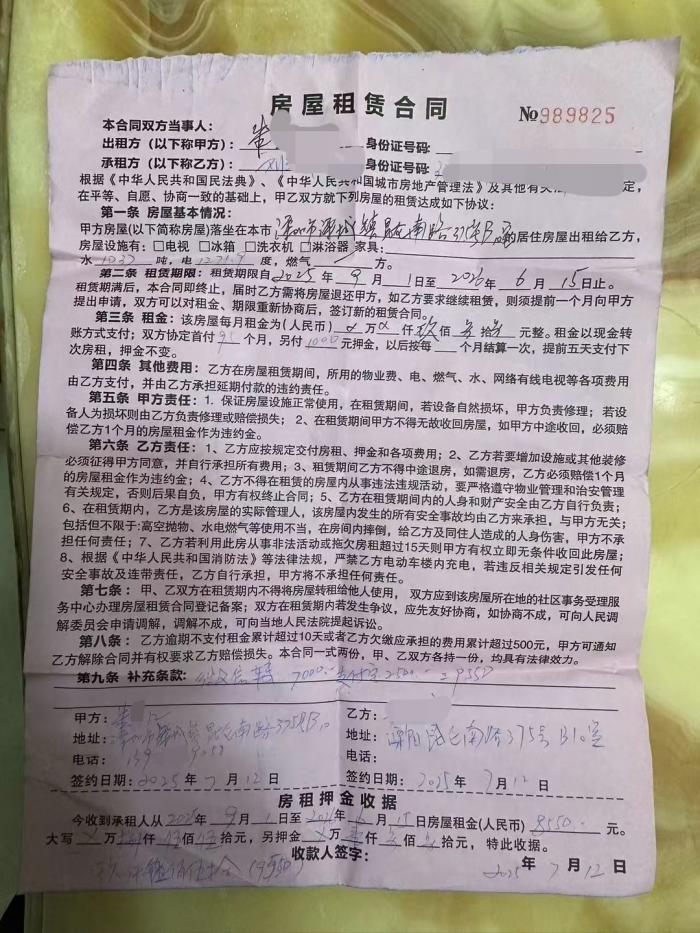 房屋租赁合同
№989825
本合同双方当事人：
出租方（以下称甲方）： 身份证号码：
承租方（以下称乙方）： 身份证号码：
根据《中华人民共和国民法典》、《中华人民共和国城市房地产管理法》及其他有关 定，
在平等、自愿、协商一致的基础上，甲乙双方就下列房屋的租赁达成如下协议：
第一条 房屋基本情况：
甲方房屋（以下简称房屋）落坐在本市 昆仑南路375号 的居住房屋出租给乙方，
房屋设施有：□电视 □冰箱 □洗衣机 □淋浴器 家具：
水1037吨，电 度，燃气 方。
第二条 租赁期限：租赁期限自2025年9月1日至2026年6月15日止。
租赁期满后，本合同即终止，届时乙方需将房屋退还甲方，如乙方要求继续租赁，则须提前一个月向甲方
提出申请，双方可以对租金、期限重新协商后，签订新的租赁合同。
第三条 租金：该房屋每月租金为（人民币） 万 仟玖佰 拾 元整。租金以现金转
账方式支付；双方协定首付9.5个月，另付1000元押金，以后按每 个月结算一次，提前五天支付下
次房租，押金不变。
第四条 其他费用：乙方在房屋租赁期间，所用的物业费、电、燃气、水、网络有线电视等各项费用
由乙方支付，并由乙方承担延期付款的违约责任。
第五条 甲方责任：1. 保证房屋设施正常使用，在租赁期间，若设备自然损坏，甲方负责修理；若设
备人为损坏则由乙方负责修理或赔偿损失；2、在租赁期间甲方不得无故收回房屋，如甲方中途收回，必须赔
偿乙方1个月的房屋租金作为违约金。
第六条 乙方责任：1、乙方应按规定交付房租、押金和各项费用；2、乙方若要增加设施或其他装修
必须征得甲方同意，并自行承担所有费用；3、租赁期间乙方不得中途退房，如需退房，乙方必须赔偿1个月
的房屋租金作为违约金；4、乙方不得在租赁的房屋内从事违法违规活动，要严格遵守物业管理和治安管理
有关规定，否则后果自负，甲方有权终止合同；5、乙方在租赁期间内的人身和财产安全由乙方自行负责；
6、在租赁期内，乙方是该房屋的实际管理人，该房屋内发生的所有安全事故均由乙方来承担，与甲方无关；
包括但不限于：高空抛物、水电燃气等使用不当，在房间内摔倒，给乙方及同住人造成的人身伤害，甲方不承
担任何责任；7、乙方若利用此房从事非法活动或拖欠房租超过15天则甲方有权立即无条件收回此房屋；
8、根据《中华人民共和国消防法》等法律法规，严禁乙方电动车楼内充电，若违反相关规定引发任何
安全事故及连带责任，乙方自行承担，甲方将不承担任何责任。
第七条： 甲、乙双方在租期内不得将房屋转租给他人使用， 双方应到该房屋所在地的社区事务受理服
务中心办理房屋租赁合同登记备案；双方在租赁期内若发生争议，应先友好协商，如协商不成，可向人民调
解委员会申请调解，调解不成，可向当地人民法院提起诉讼。
第八条： 乙方逾期不支付租金累计超过10天或者乙方欠缴应承担的费用累计超过500元，甲方可通知
乙方解除合同并有权要求乙方赔偿损失。本合同一式两份，甲、乙双方各持一份，均具有法律效力。
第九条 补充条款： 7000 2550 =9550
甲方： 乙方：
地址： 昆仑南路375号B10 地址：溧阳昆仑南路375号B10室
电话：139 电话：
签约日期：2025年7月12日 签约日期：2025年7月12日
房租押金收据
今收到承租人从2025年9月1日至2026年6月15日房屋租金（人民币）8550元。
大写 万捌仟伍佰伍拾元，另押金 万壹仟 佰 拾元，特此收据。
收款人签字：
(9550) 2025年7月12日